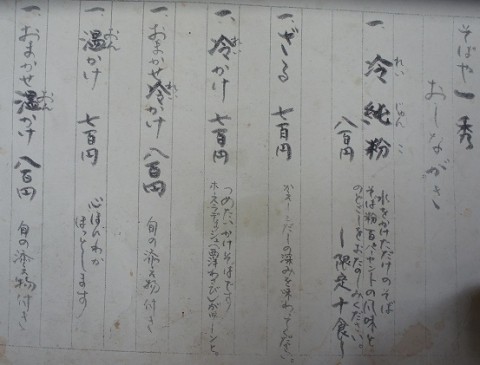 そばや 一秀
おしながき
一、冷純粉 八百円
れい じゅん こ
水をかけただけのそば
そば粉百パーセントの風味と、
のどごしをおたのしみください。
ー限定十食ー
一、ざる 七百円
かえしとだしの深みを味わって下さい。
一、冷かけ 七百円
れい
つめたいかけそばです。
ホースラディッシュ(西洋わさび)がツーンと
一、おまかせ冷かけ 八百円
れい
旬の添え物付き
一、温かけ 七百円
おん
心ほんわか
ほっとします
一、おまかせ温かけ 八百円
おん
旬の添え物付き